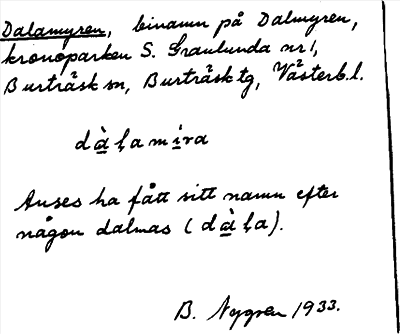 Dalamyren, binamn på Dalmyren,
kronoparken S. Granlunda nr 1,
Burträsk sn, Burträsk tg, Västerb. l.
dàḷamira
Anses ha fått sitt namn efter
någon dalmas (dàḷa).
B. Nygren 1933.